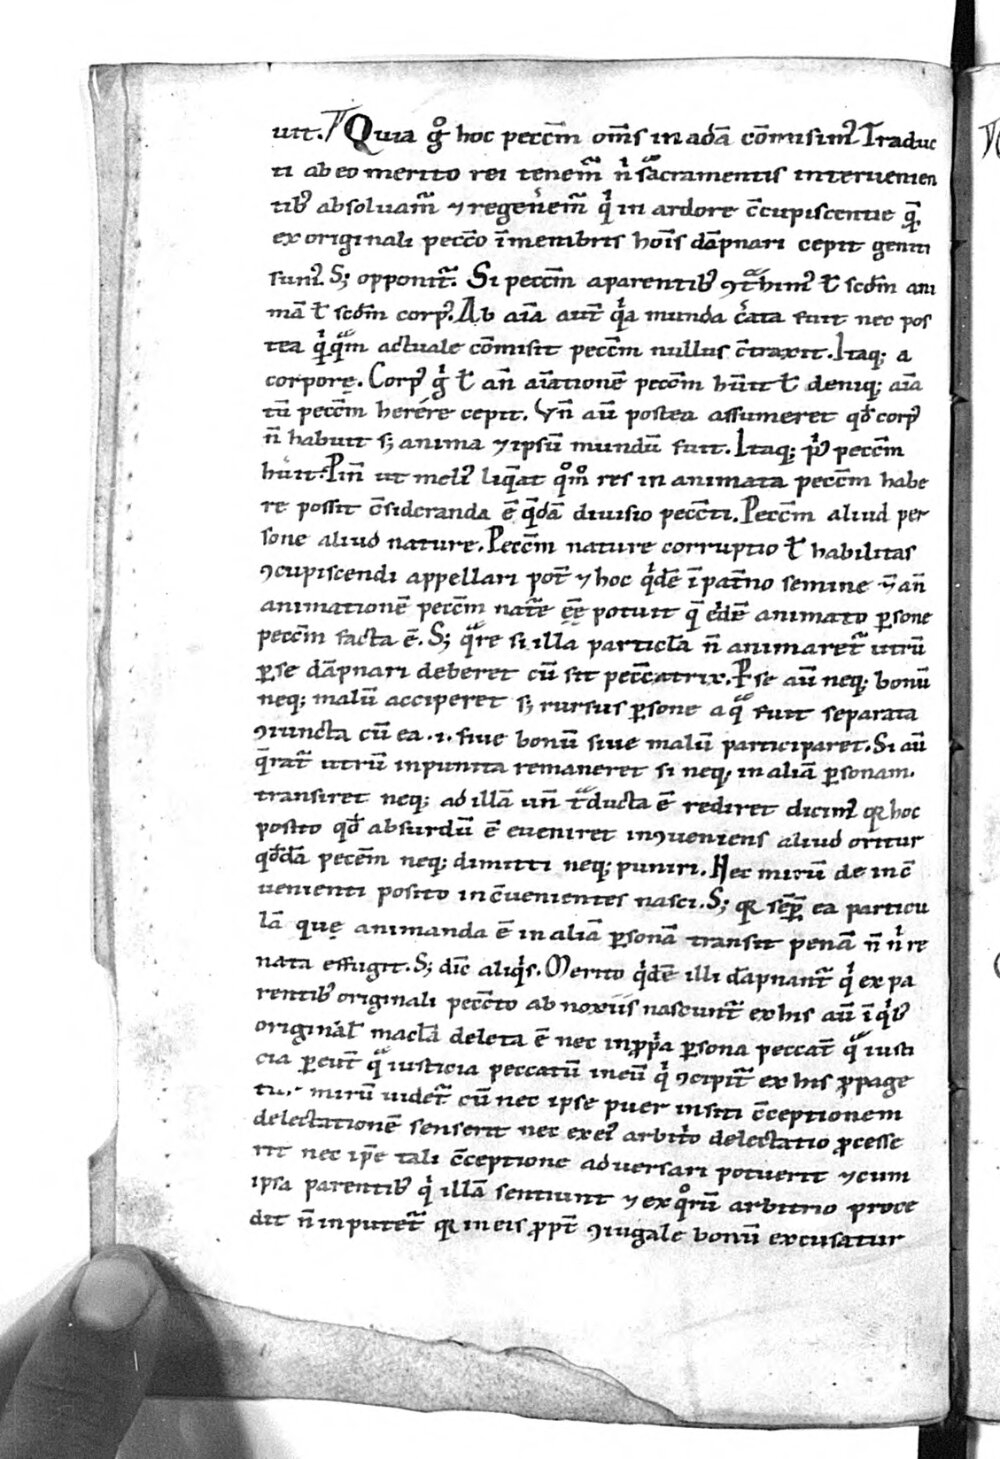 uit. Quia g° hoc pecc̄m om̄s in adā cōmisim᷒ Traduc
ti ab eo merito rei tenem᷑ n̄ sacramentis interuenien
tib᷒ absoluam᷑ ⁊ regen̄em᷑ qⁱ in ardore c̄cupiscentie q̄
ex originali pecc̄o īmembris hoīs dāpnari cepit geniti
sum᷒. S; opponit᷑. Si pecc̄m a parentib᷒ ꝯt̄him᷒ ł scd̄m ani
mā ł scd̄m corp᷒. Ab aīa aut̄ qⁱa munda c̄ata fuit nec pos
tea qⁱ qᵃm actuale cōmisit pecc̄m nullus c̄traxit. Itaq; a
corpore. Corp᷒ gⁱ ł an̄ aīationē pecc̄m hūit ł deniq; aīa
tū pecc̄m herēre cepit. Vn̄ aū postea assumeret qd̄ corp᷒
n̄ habuit s; anima ⁊ ipsū mundū fuit. Itaq; pⁱ᷒ pecc̄m
hūit. Pīn ut meli᷒ liq̄at qºmº res inanimata pecc̄m habe
re possit c̄sideranda ē q̄dā diuisio pecc̄ti. Pecc̄m aliud per
sone aliud nature. Pecc̄m nature corruptio ł habilitas
ꝯcupiscendi appellari pot̄ ⁊ hoc qⁱdē ī pat̄no semine ⁊ an̄
animationē pecc̄m nat̄e ēē potuit q̄ ēdē animato ꝑsone
pecc̄m facta ē. S; qᵃre si illa particl̄a n̄ animaret᷑ utrū
ꝑ se dāpnari deberet cū sit pecc̄atrix. Ꝑ se aū neq; bonū
neq; malū acciperet s; rursus ꝑsone a qᵃ fuit separata
ꝯiuncta cū ea .i. siue bonū siue malū participaret. Si aū
q̄rat᷑ utrū inpunita remaneret si neq; in aliā ꝑsonam
transiret neq; ad illā un̄ t̄ducta ē rediret dicim᷒ qꝛ hoc
posito qd̄ absurdū ē eueniret inꝯueniens aliud oritur
qd̄dā pecc̄m neq; dimitti neq; puniri. Nec mirū de inc̄
uenienti posito inc̄uenientes nasci. S; qꝛ sēꝑ ea particu
lā quę animanda ē in aliā ꝑsonā transit penā n̄ nⁱ re
nata effugit. S; dīc aliqⁱs. Merito qⁱdē illi dāpnant᷑ qⁱ ex pa
rentib᷒ originali pecc̄to abnoxiis nascunt᷑ ex his aū ī qⁱb᷒
original̄ macl̄a deleta ē nec inꝓpⁱa ꝑsona peccat̄ qᵃ iusti
cia ꝑeunt̄ qᵃ iusticia peccatū in eū qⁱ ꝯcipit᷑ ex his ꝓpage
tu᷑ mirū uidet᷑ cū nec ipse puer insiti c̄ceptionem
delectationē senserit nec ex ei᷒ arbitⁱo delectatio ꝓcesse
rit nec ip̄e tali c̄ceptione aduersari potuerit ⁊ cum
ipsa parentib᷒ qⁱ illā sentiunt ⁊ ex qºrū arbitrio proce
dit n̄ inputet᷑ qꝛ in eis ꝓpt̄ ꝯiugale bonū excusatur